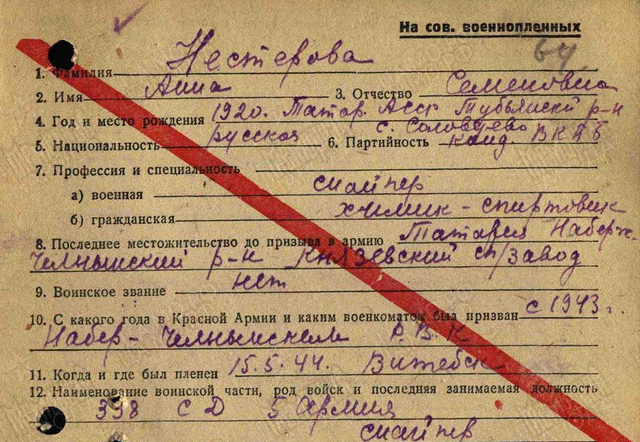 На сов. военнопленных
64
1. Фамилия Нестерова
2. Имя Анна 3. Отчество Семеновна
4. Год и место рождения 1920. Татар. Асср Тубьянски р-н
с. Соловцево
5. Национальность русская 6. Партийность канд ВКПБ
7. Профессия и специальность
а) военная снайпер
б) гражданская химик - спиртовик
8. Последнее местожительство до призыва в армию Татария Набер-
Челнынский р-н Князевский сп/завод
9. Воинское звание нет
10. С какого года в Красной Армии и каким военкоматом был призван с 1943 г.
Набер- Челнынским Р.В.К
11. Когда и где был пленен 15.5.44. Витебск
12. Наименование воинской части, род войск и последняя занимаемая должность
338 СД 5 Армия
снайпер